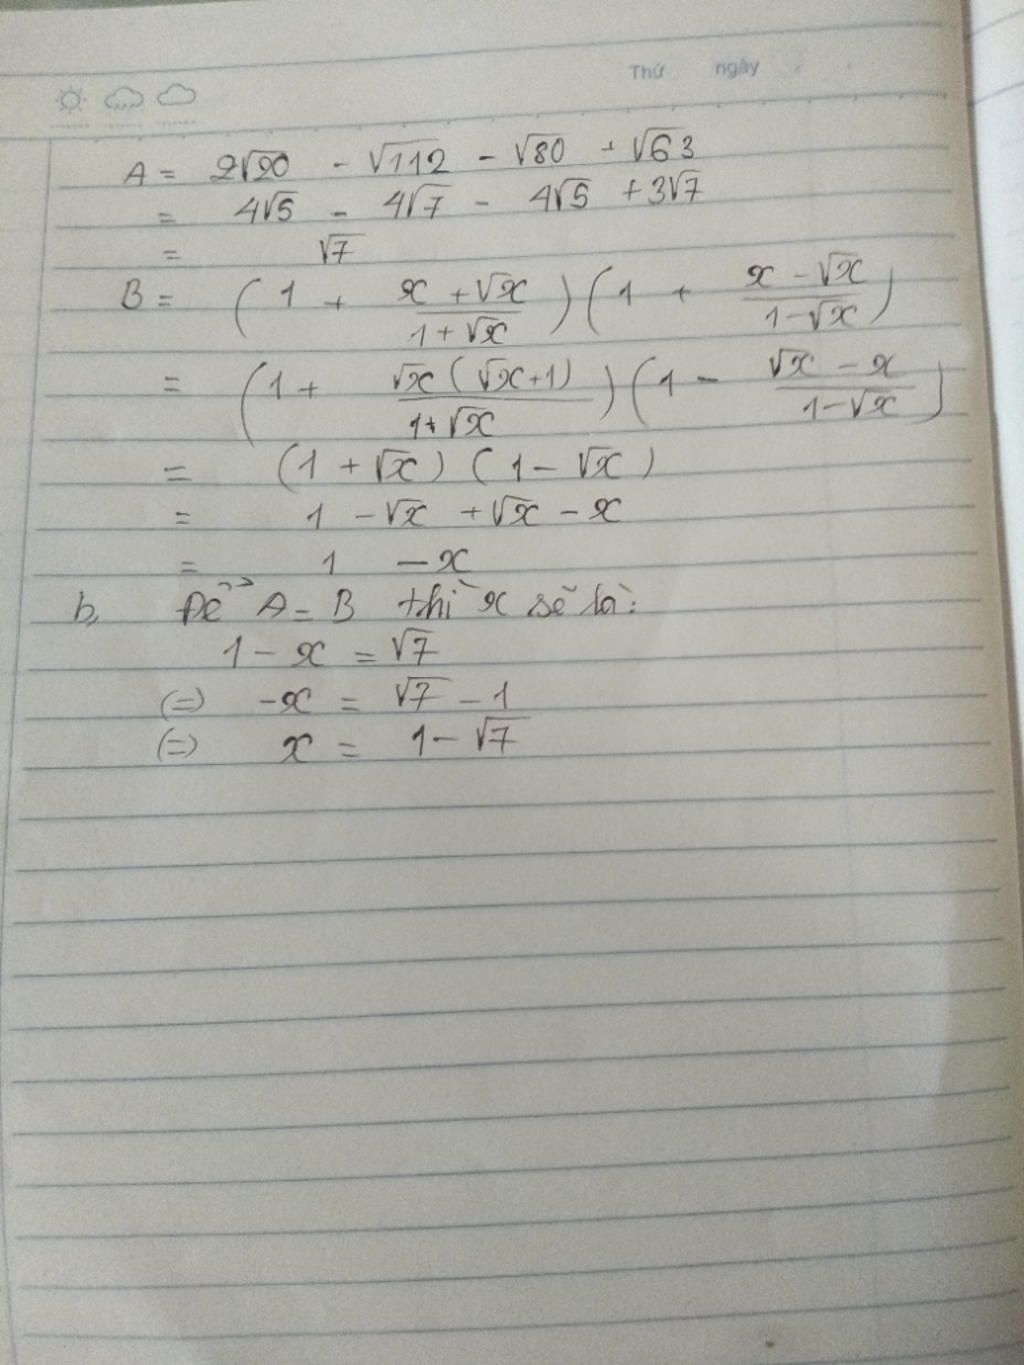 Thứ ngày
A = 2√20 - √112 - √80 + √63
= 4√5 - 4√7 - 4√5 + 3√7
= √7
B = (1 + (x + √x)/(1 + √x)) (1 + (x - √x)/(1 - √x))
= (1 + (√x(√x+1))/(1+√x)) (1 - (√x - x)/(1 - √x))
= (1 + √x) (1 - √x)
= 1 - √x + √x - x
= 1 - x
b, Để A = B thì x sẽ là:
1 - x = √7
(=) -x = √7 - 1
(=) x = 1 - √7